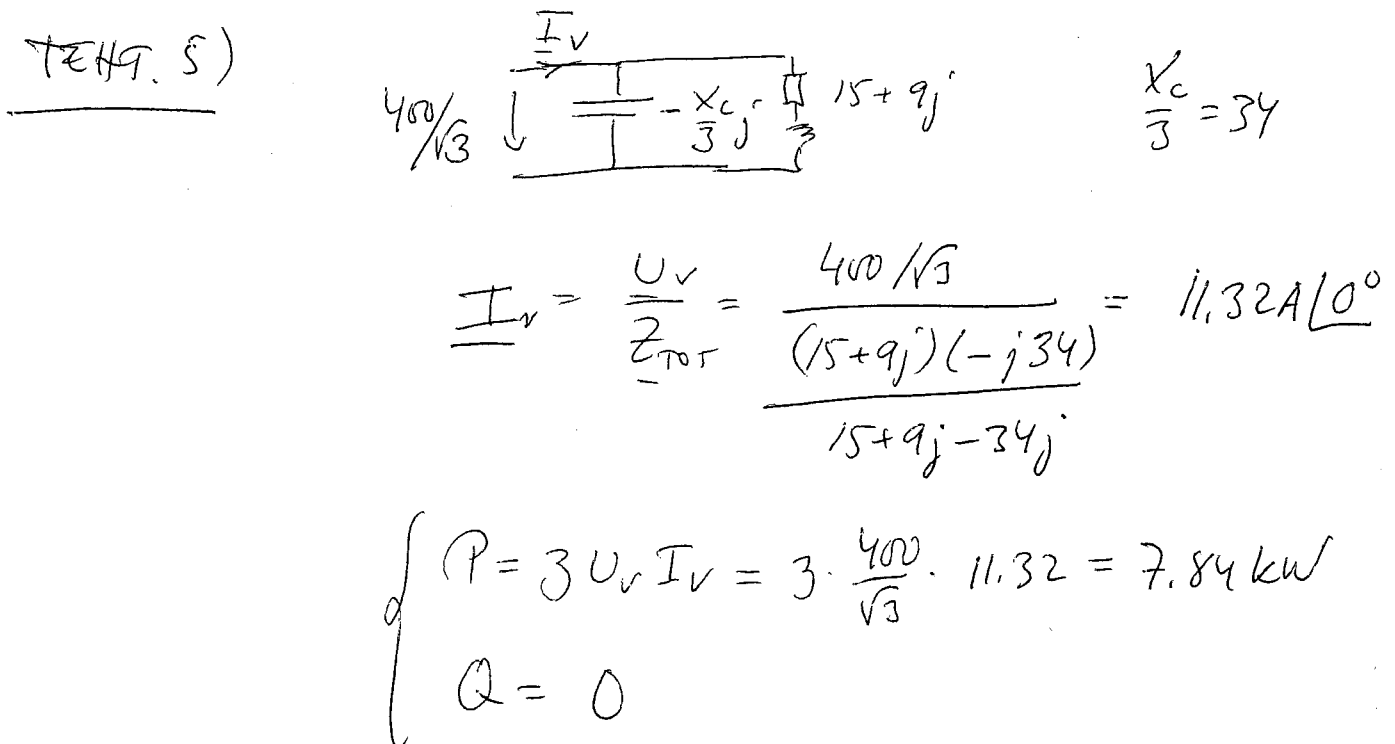 TEHT. 5)
I_v
400/√3 ↓ -X_c/3 j 15+9j X_c/3 = 34
I_v = U_v/Z_TOT = (400/√3) / ((15+9j)(-j34) / (15+9j-34j)) = 11.32A∠0°
P = 3 U_v I_v = 3 · 400/√3 · 11.32 = 7.84 kW
Q = 0